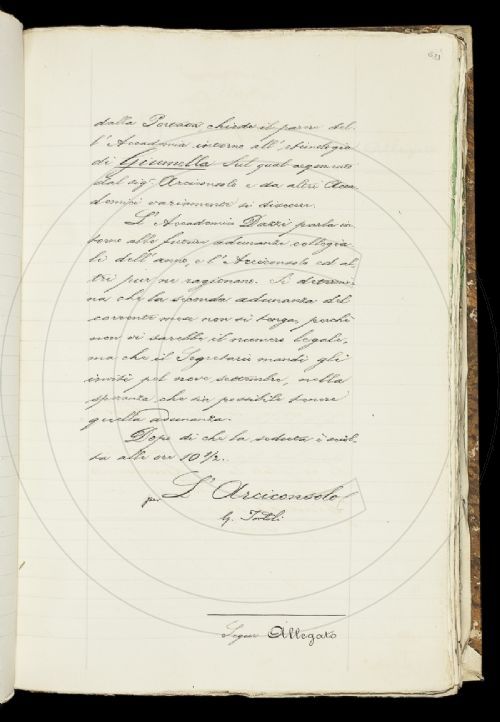 dalla Portata chiede il parere del-
l'Accademia intorno all'etimologia
di Giumella. Sul qual argomento
dal sig.r Arciconsolo e da altri Acca-
demici variamente si discorre.
L'Accademico Dazzi parla in-
torno alle future adunanze collegia-
li dell'anno, e l'Arciconsolo ed al-
tri pur ne ragionano. Si determi-
na che la seconda adunanza del
corrente mese non si tenga, perchè
non vi sarebbe il numero legale,
ma che il Segretario mandi gli
inviti pel nove settembre, nella
speranza che sia possibile tenere
quella adunanza.
Dopo di che la seduta è sciol-
ta alle ore 10 1/2.
L'Arciconsolo
G. Tortoli
Segue Allegato